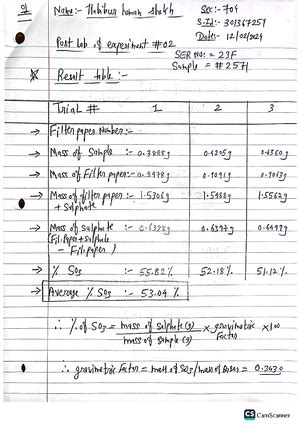 Name:- Habibur rahman shakh
Sec:- 704
S.Id:- 301367251
Date:- 12/02/2024
Post Lab of experiment #02
SER NO: = 23F
Sample = #2571
Result table :-
Trial # 1 2 3
→ Filter paper Number:-
→ Mass of Sample :- 0.3885g 0.4205g 0.4360g
→ Mass of Filter paper:-
→ Mass of filter paper + Sulphate :- 1.5306g 1.5488g 1.5562g
→ Mass of Sulphate :- 0.6328g 0.6397g
(Fil. Paper + Sulphate
- Fil. paper)
→ % SO3 :- 55.82% 52.18% 51.12%
→ Average % SO3 :- 53.04 %
∴ % of SO3 = mass of sulphate (g) / mass of sample (g) × gravimetric factor × 100
∴ gravimetric factor = mass of SO3 / mass of = 0.3430
CS CamScanner